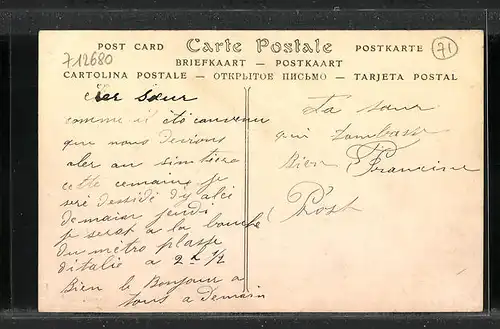 POST CARD Carte Postale POSTKARTE
BRIEFKAART — POSTKAART
CARTOLINA POSTALE — ОТКРЫТОЕ ПИСЬМО — TARJETA POSTAL
712680
71
cher Sœur
comme il ètè convenu
que nous devions
aler au simtiere
cette cemaine je
seré dessidé d'y alei
demain jeudi
je serat a la bouche
du métro plasse
d'italie a 2 h 1/2
Bien le Bonjour a
tous a demain
Ta sœur
qui
Bien Francine
Prost